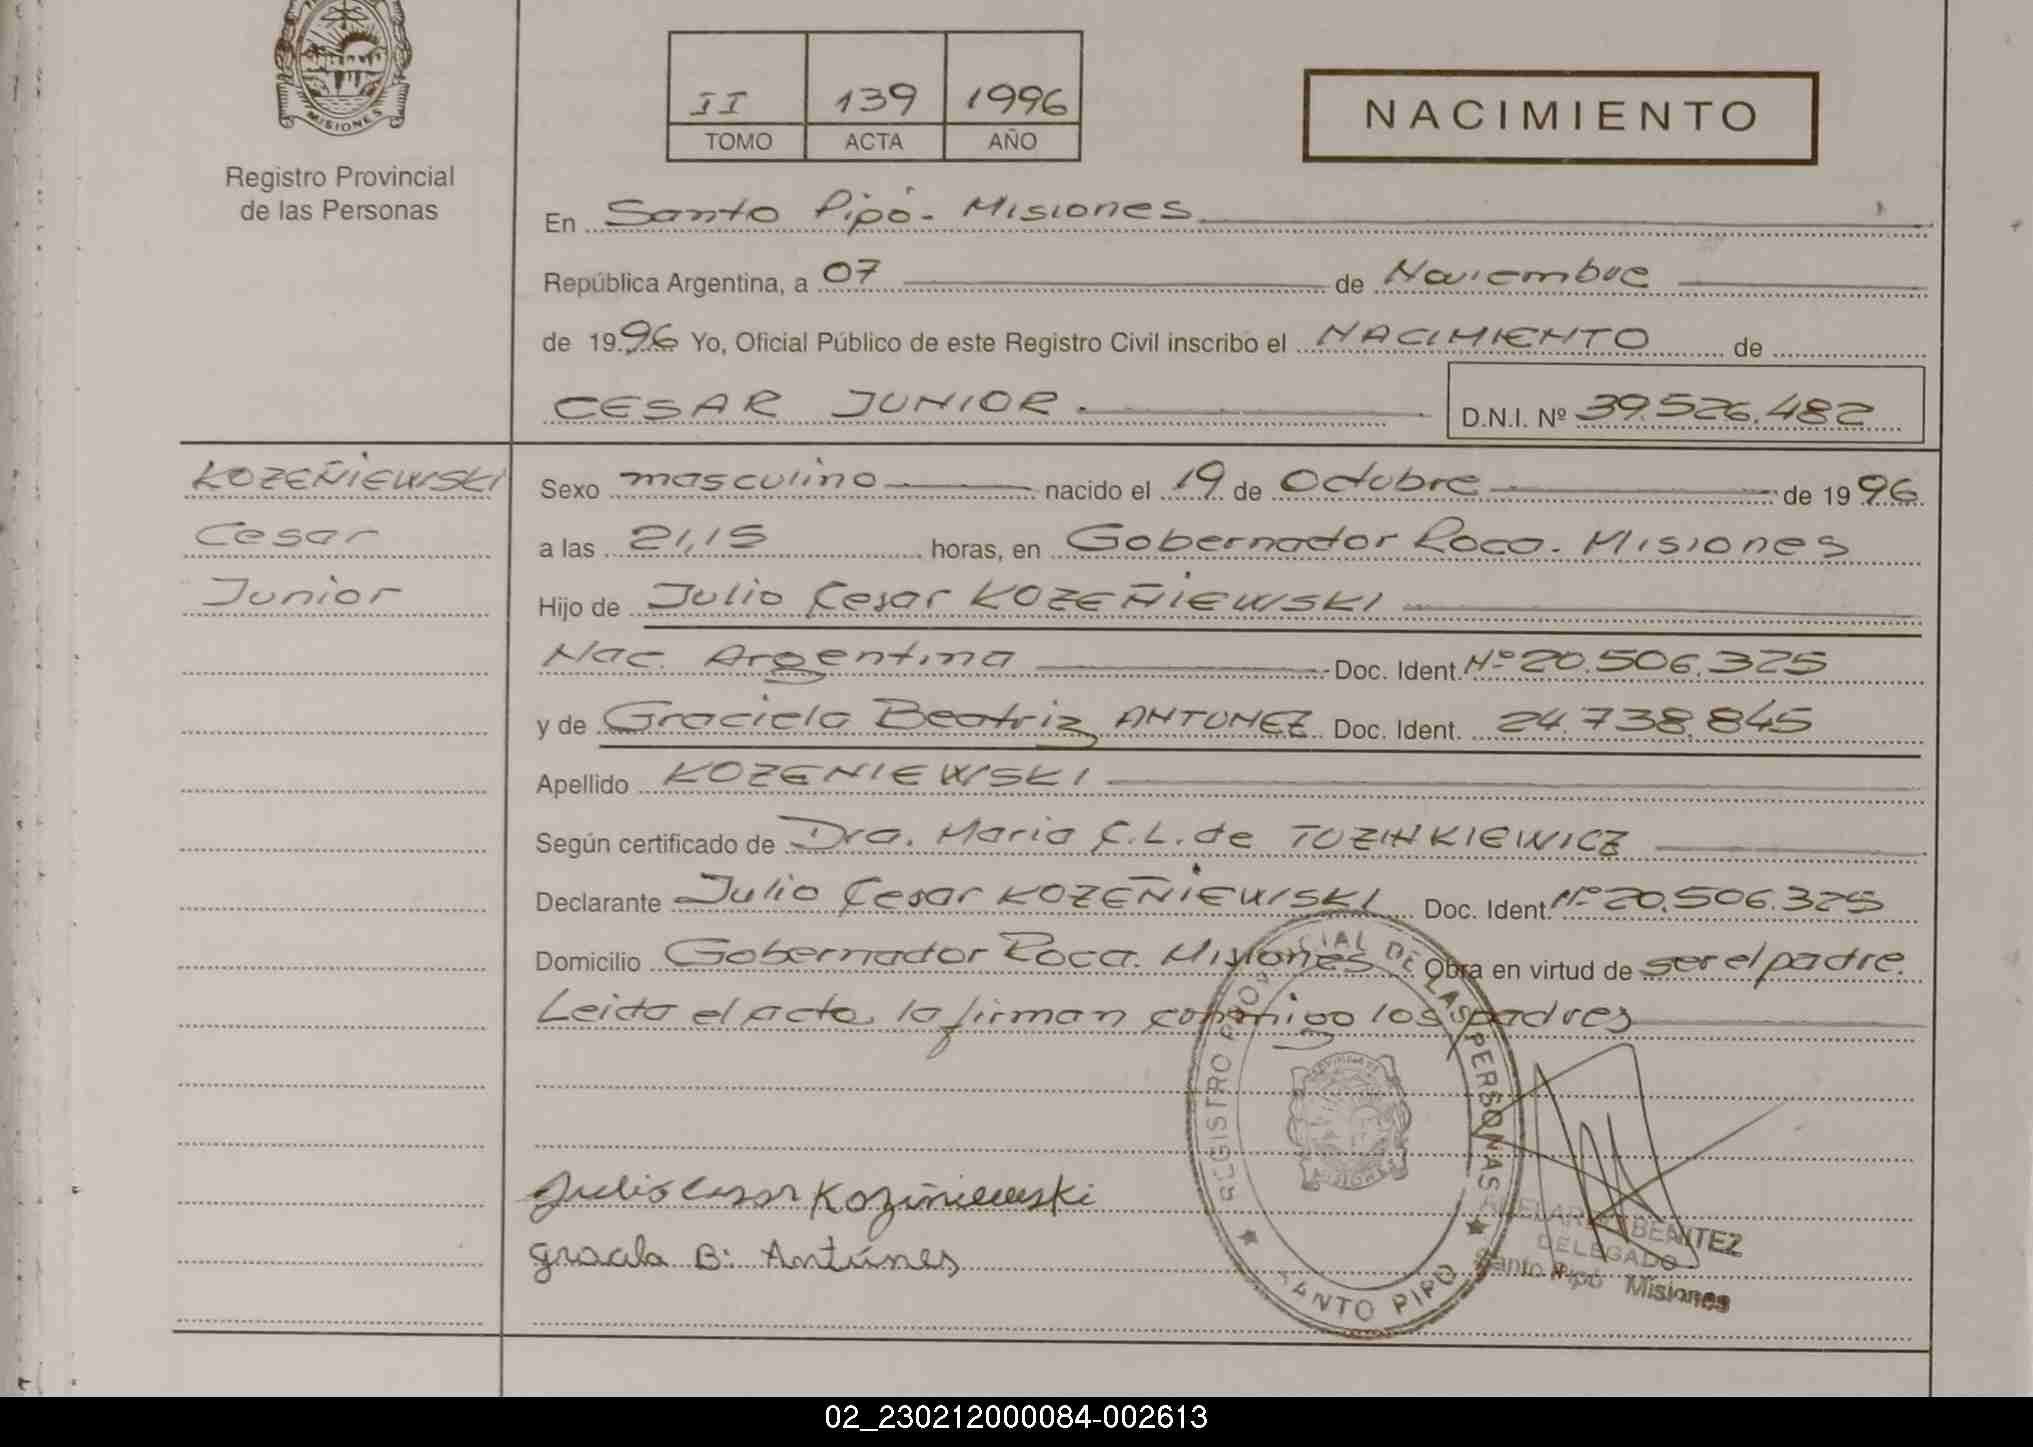 MISIONES
Registro Provincial
de las Personas
II 139 1996
TOMO ACTA AÑO
NACIMIENTO
En Santo Pipó - Misiones
República Argentina, a 07 de Noviembre
de 1996 Yo, Oficial Público de este Registro Civil inscribo el NACIMIENTO de
CESAR JUNIOR D.N.I. Nº 39.526.482
KOZEÑIEWSKI
Cesar
Junior
Sexo masculino nacido el 19 de Octubre de 1996
a las 21,15 horas, en Gobernador Roca. Misiones
Hijo de Julio Cesar KOZEÑIEWSKI
Nac. Argentina Doc. Ident. Nº 20.506.325
y de Graciela Beatriz ANTUNEZ Doc. Ident. 24.738.845
Apellido KOZENIEWSKI
Según certificado de Dra. Maria C.L. de TOZINKIEWICZ
Declarante Julio Cesar KOZEÑIEWSKI Doc. Ident. Nº 20.506.325
Domicilio Gobernador Roca. Misiones Obra en virtud de ser el padre.
Leida el acta, la firman conmigo los padres
REGISTRO PROVINCIAL DE LAS PERSONAS
SANTO PIPO
Julio Cesar Koziñiewski
Graciela B. Antúnes
BENITEZ
DELEGADO
Santo Pipó Misiones
02_230212000084-002613